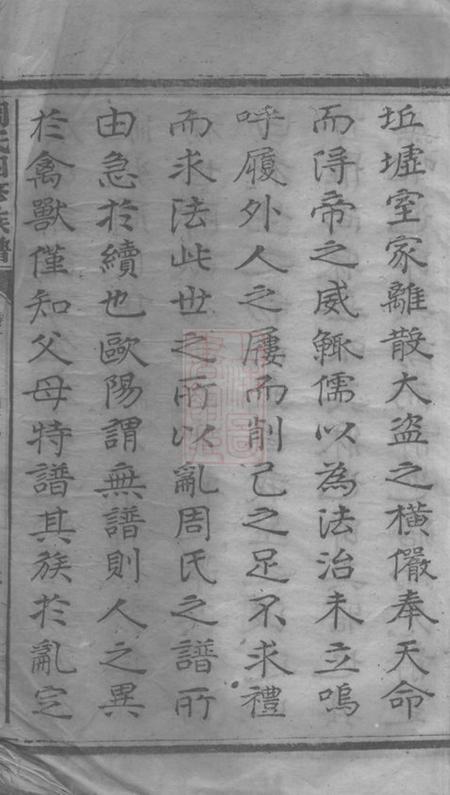 坵墟室家離散大盗之橫儼奉天命
而淂帝之威鲰儒以為法治未立嗚
呼履外人之屨而削己之足不求禮
而求法此世之所以亂周氏之譜所
由急於續也歐陽謂無譜則人之異
於禽獸僅知父母特譜其族於亂定
周氏四修族譜